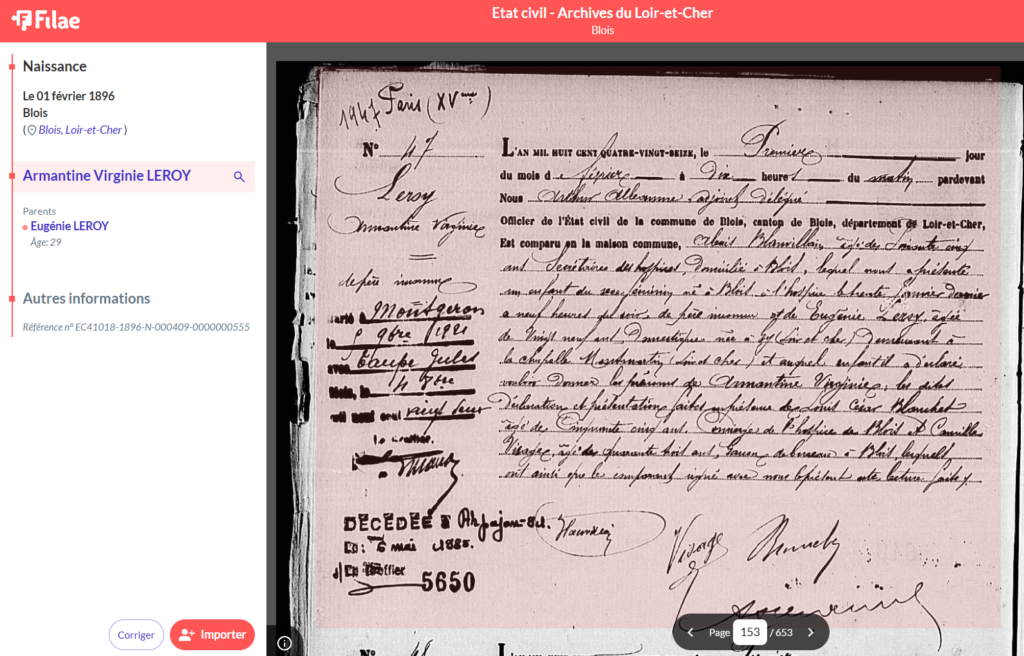 Filae
Etat civil - Archives du Loir-et-Cher
Blois
Naissance
Le 01 février 1896
Blois
(Blois, Loir-et-Cher )
Armantine Virginie LEROY
Parents
Eugénie LEROY
Âge: 29
Autres informations
Référence n° EC41018-1896-N-000409-0000000555
Corriger
Importer
1947 Paris (XVème)
N° 47
Leroy
Armantine Virginie
de père inconnu
Marié à Montgeron
le 5 9bre 1921
avec Taupe Jules
Blois, le
mil neuf cent vingt
Le Greffier.
DÉCÉDÉE à Arpajon
Le: 5 mai 1985.
Le Greffier
5650
L'AN MIL HUIT CENT QUATRE-VINGT-SEIZE, le Premier jour
du mois de février à dix heures du matin pardevant
Nous Arthur adjoint délégué
Officier de l'État civil de la commune de Blois, canton de Blois, département de Loir-et-Cher,
Est comparu en la maison commune, Alexis Blanvillain âgé de Soixante cinq
ans Secrétaire des hospices, domicilié à Blois, lequel nous a présenté
un enfant du sexe féminin né à Blois à l'hospice le trente Janvier dernier
à neuf heures du soir, de père inconnu et de Eugénie Leroy, âgée
de Vingt neuf ans, Domestique née à (Loir et cher) demeurant à
la chapelle Montmartin (Loir et cher) et auquel enfant il a déclaré
vouloir donner les prénoms de Armantine Virginie, les dites
Déclaration et présentation faites en présence de Louis César Blanchet
âgé de Cinquante cinq ans, Concierge de l'hospice de Blois et Camille
Visage, âgé de quarante huit ans, Garçon de bureau à Blois, lesquels
ont ainsi que le comparant signé avec nous le présent acte lecture faite.
Visage
Page 153 / 653
N° 48